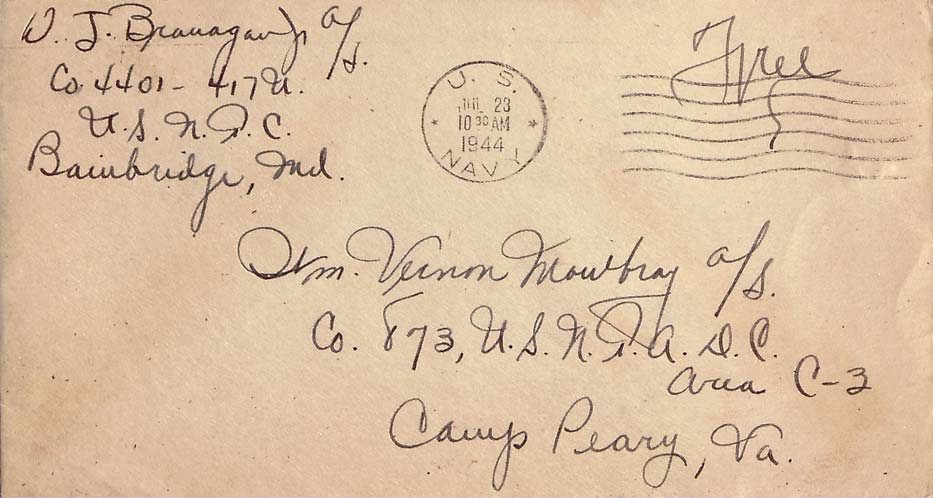 W. J. Branagan Jr A/S.
Co. 4401 - 417 U.
U.S.N.T.C.
Bainbridge, Md.
U. S.
JUL 23
10 30 AM
1944
NAVY
Free
Wm. Vernon Mowbray A/S.
Co. 873, U.S.N.T.A.D.C.
Area C-3
Camp Peary, Va.